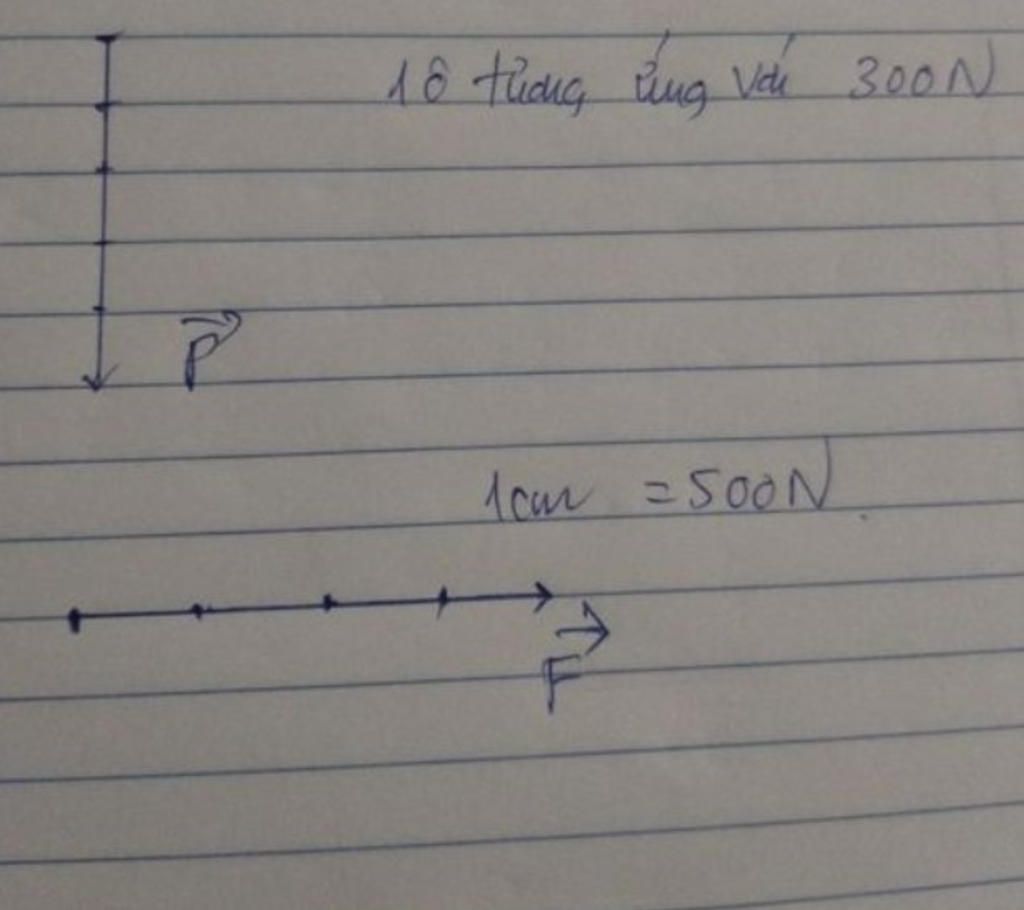 1 ô tương ứng với 300N
P
1cm = 500N
F